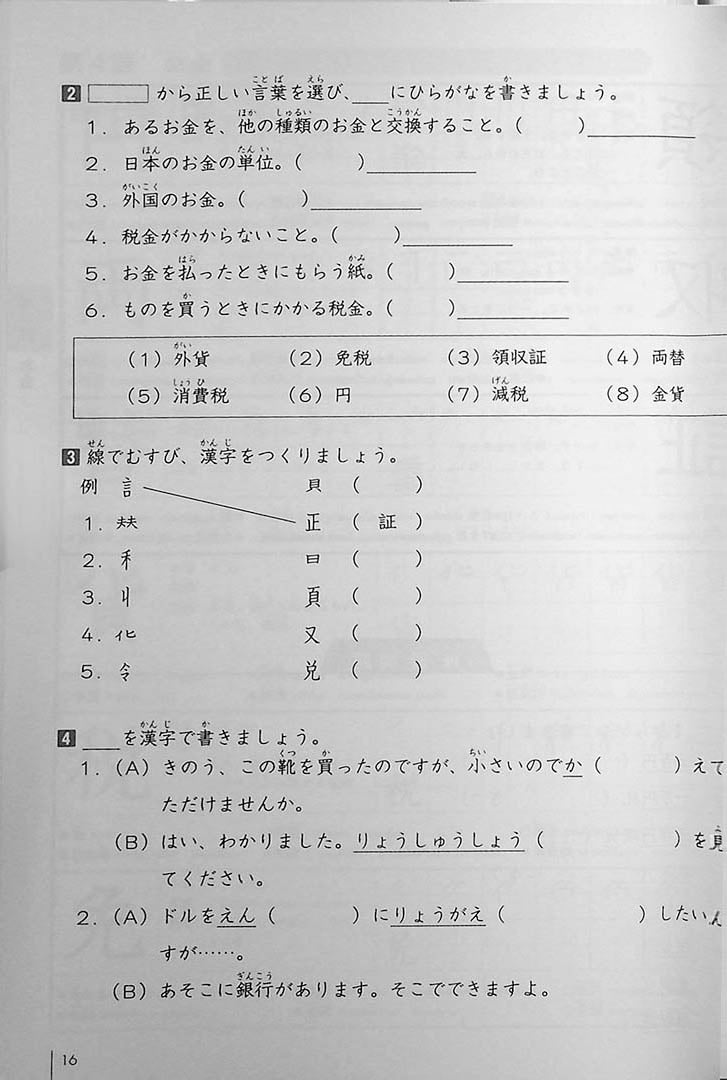 2 から正しい言葉を選び、___にひらがなを書きましょう。
1. あるお金を、他の種類のお金と交換すること。(　　)________
2. 日本のお金の単位。(　　)________
3. 外国のお金。(　　)________
4. 税金がかからないこと。(　　)________
5. お金を払ったときにもらう紙。(　　)________
6. ものを買うときにかかる税金。(　　)________
(1) 外貨 (2) 免税 (3) 領収証 (4) 両替
(5) 消費税 (6) 円 (7) 減税 (8) 金貨
3 線でむすび、漢字をつくりましょう。
例 言 貝 (　　)
1. 𡗗 正 ( 証 )
2. 禾 日 (　　)
3. 丩 頁 (　　)
4. 化 又 (　　)
5. 令 兌 (　　)
4 ___を漢字で書きましょう。
1. (A) きのう、この靴を買ったのですが、小さいのでか (　　) えて
ただけませんか。
(B) はい、わかりました。りょうしゅうしょう (　　) を見
てください。
2. (A) ドルをえん (　　) にりょうがえ (　　) したいん
すが……。
(B) あそこに銀行があります。そこでできますよ。
16